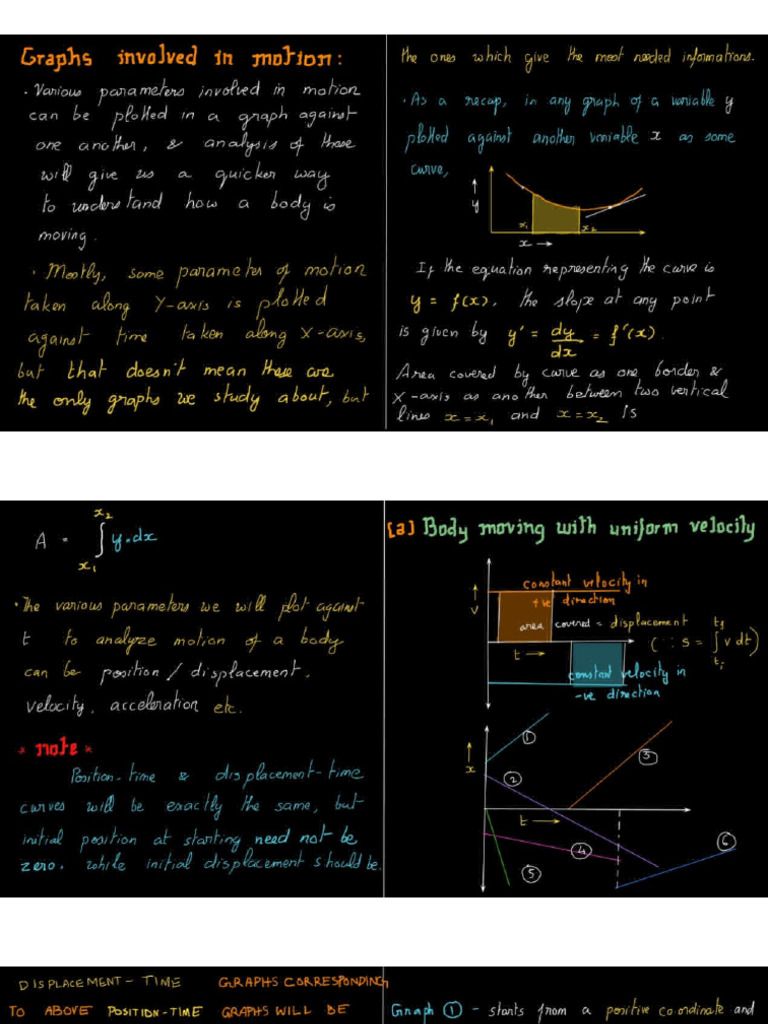 Graphs involved in motion:
• Various parameters involved in motion
can be plotted in a graph against
one another, & analysis of these
will give us a quicker way
to understand how a body is
moving.
• Mostly, some parameter of motion
taken along Y-axis is plotted
against time taken along X-axis,
but that doesn't mean these are
the only graphs we study about, but
the ones which give the most needed informations.
• As a recap, in any graph of a variable y
plotted against another variable x as some
curve,
y
x₁ x₂
x
If the equation representing the curve is
y = f(x), the slope at any point
is given by y' = dy/dx = f'(x).
Area covered by curve as one border &
X-axis as another between two vertical
lines x = x₁ and x = x₂ is
A = ∫ y.dx
x₂
x₁
• The various parameters we will plot against
t to analyze motion of a body
can be position / displacement,
velocity, acceleration etc.
* note *
Position-time & displacement-time
curves will be exactly the same, but
initial position at starting need not be
zero. While initial displacement should be.
(a) Body moving with uniform velocity
constant velocity in
+ve direction
v
area covered = displacement
t
(∵ s = ∫ v dt)
tf
ti
constant velocity in
-ve direction
x
t
1
2
3
4
5
6
DISPLACEMENT - TIME GRAPHS CORRESPONDING
TO ABOVE POSITION-TIME GRAPHS WILL BE
Graph ① - starts from a positive co-ordinate and